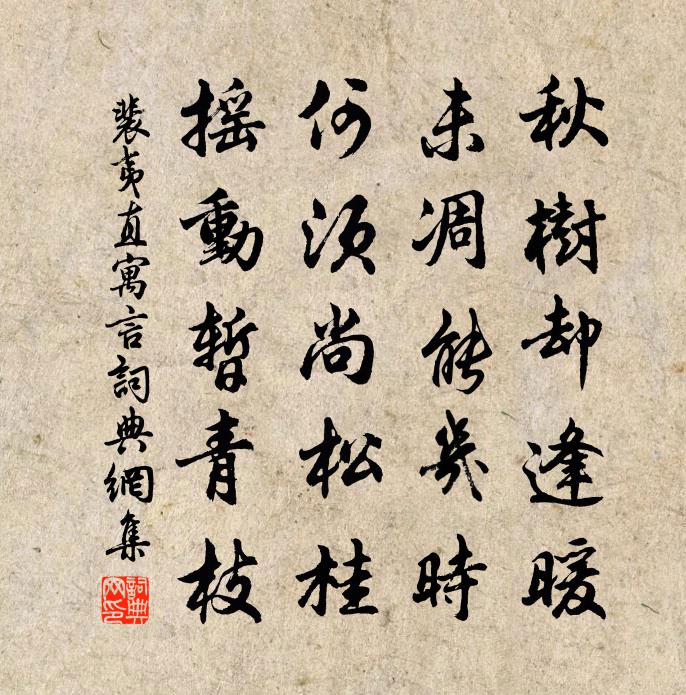 秋樹却逢暖
未凋能幾時
何須尚松桂
搖動暫青枝
裴夷直寓言詞典網集
詞典
网印